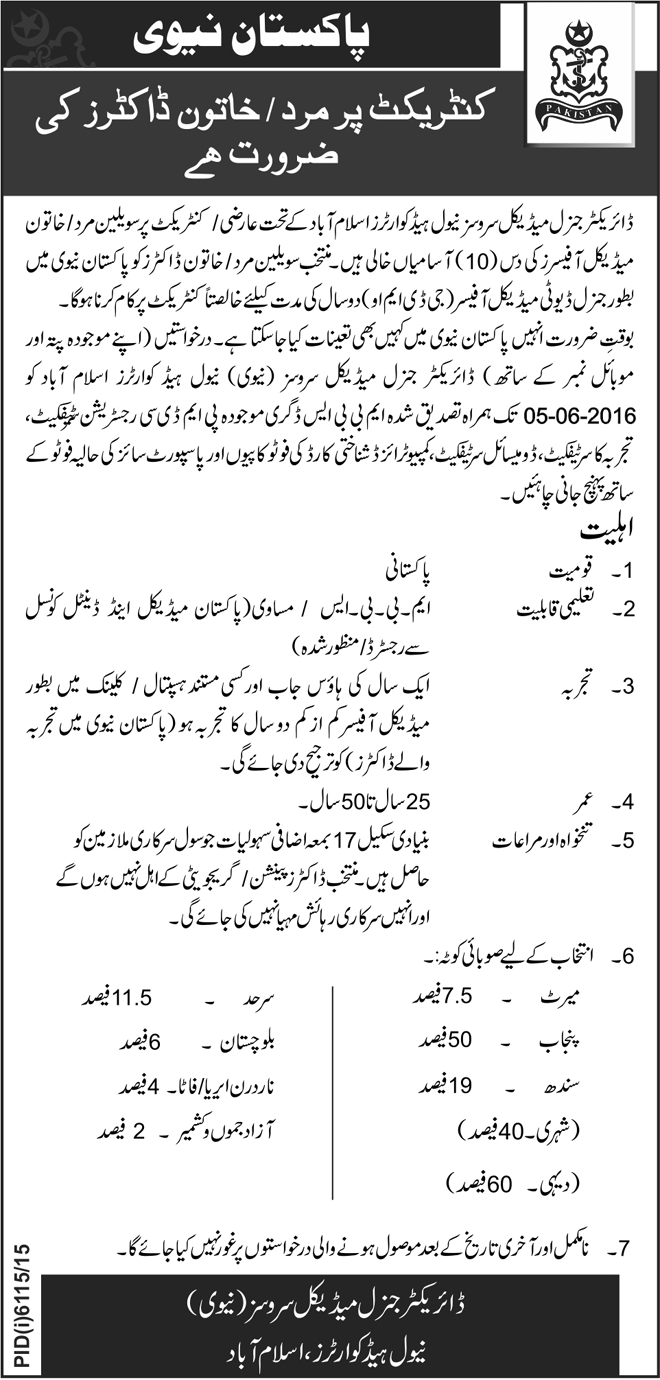 پاکستان نیوی
PAKISTAN
کنٹریکٹ پر مرد/خاتون ڈاکٹرز کی
ضرورت ھے
ڈائریکٹر جنرل میڈیکل سروسز نیول ہیڈ کوارٹرز اسلام آباد کے تحت عارضی/ کنٹریکٹ پر سویلین مرد/خاتون
میڈیکل آفیسرز کی دس (10) آسامیاں خالی ہیں۔ منتخب سویلین مرد/خاتون ڈاکٹرز کو پاکستان نیوی میں
بطور جنرل ڈیوٹی میڈیکل آفیسر (جی ڈی ایم او) دو سال کی مدت کیلئے خالصتاً کنٹریکٹ پر کام کرنا ہوگا۔
بوقتِ ضرورت انہیں پاکستان نیوی میں کہیں بھی تعینات کیا جاسکتا ہے۔ درخواستیں (اپنے موجودہ پتہ اور
موبائل نمبر کے ساتھ) ڈائریکٹر جنرل میڈیکل سروسز (نیوی) نیول ہیڈ کوارٹرز اسلام آباد کو
05-06-2016 تک ہمراہ تصدیق شدہ ایم بی بی ایس ڈگری موجودہ پی ایم ڈی سی رجسٹریشن سرٹیفکیٹ،
تجربہ کا سرٹیفکیٹ، ڈومیسائل سرٹیفکیٹ، کمپیوٹرائزڈ شناختی کارڈ کی فوٹو کاپیوں اور پاسپورٹ سائز کی حالیہ فوٹو کے
ساتھ پہنچ جانی چاہئیں۔
اہلیت
1۔ قومیت پاکستانی
2۔ تعلیمی قابلیت ایم۔بی۔بی۔ایس / مساوی (پاکستان میڈیکل اینڈ ڈینٹل کونسل
سے رجسٹرڈ/منظور شدہ)
3۔ تجربہ ایک سال کی ہاؤس جاب اور کسی مستند ہسپتال / کلینک میں بطور
میڈیکل آفیسر کم از کم دو سال کا تجربہ ہو (پاکستان نیوی میں تجربہ
والے ڈاکٹرز) کو ترجیح دی جائے گی۔
4۔ عمر 25 سال تا 50 سال۔
5۔ تنخواہ اور مراعات بنیادی سکیل 17 بمعہ اضافی سہولیات جو سول سرکاری ملازمین کو
حاصل ہیں۔ منتخب ڈاکٹرز پینشن/ گریجویٹی کے اہل نہیں ہوں گے
اور انہیں سرکاری رہائش مہیا نہیں کی جائے گی۔
6۔ انتخاب کے لیے صوبائی کوٹہ:۔
میرٹ ۔ 7.5 فیصد
پنجاب ۔ 50 فیصد
سندھ ۔ 19 فیصد
(شہری۔ 40 فیصد)
(دیہی۔ 60 فیصد)
سرحد ۔ 11.5 فیصد
بلوچستان ۔ 6 فیصد
ناردرن ایریا/فاٹا۔ 4 فیصد
آزاد جموں و کشمیر ۔ 2 فیصد
7۔ نامکمل اور آخری تاریخ کے بعد موصول ہونے والی درخواستوں پر غور نہیں کیا جائے گا۔
ڈائریکٹر جنرل میڈیکل سروسز (نیوی)
نیول ہیڈ کوارٹرز، اسلام آباد
PID(i)6115/15